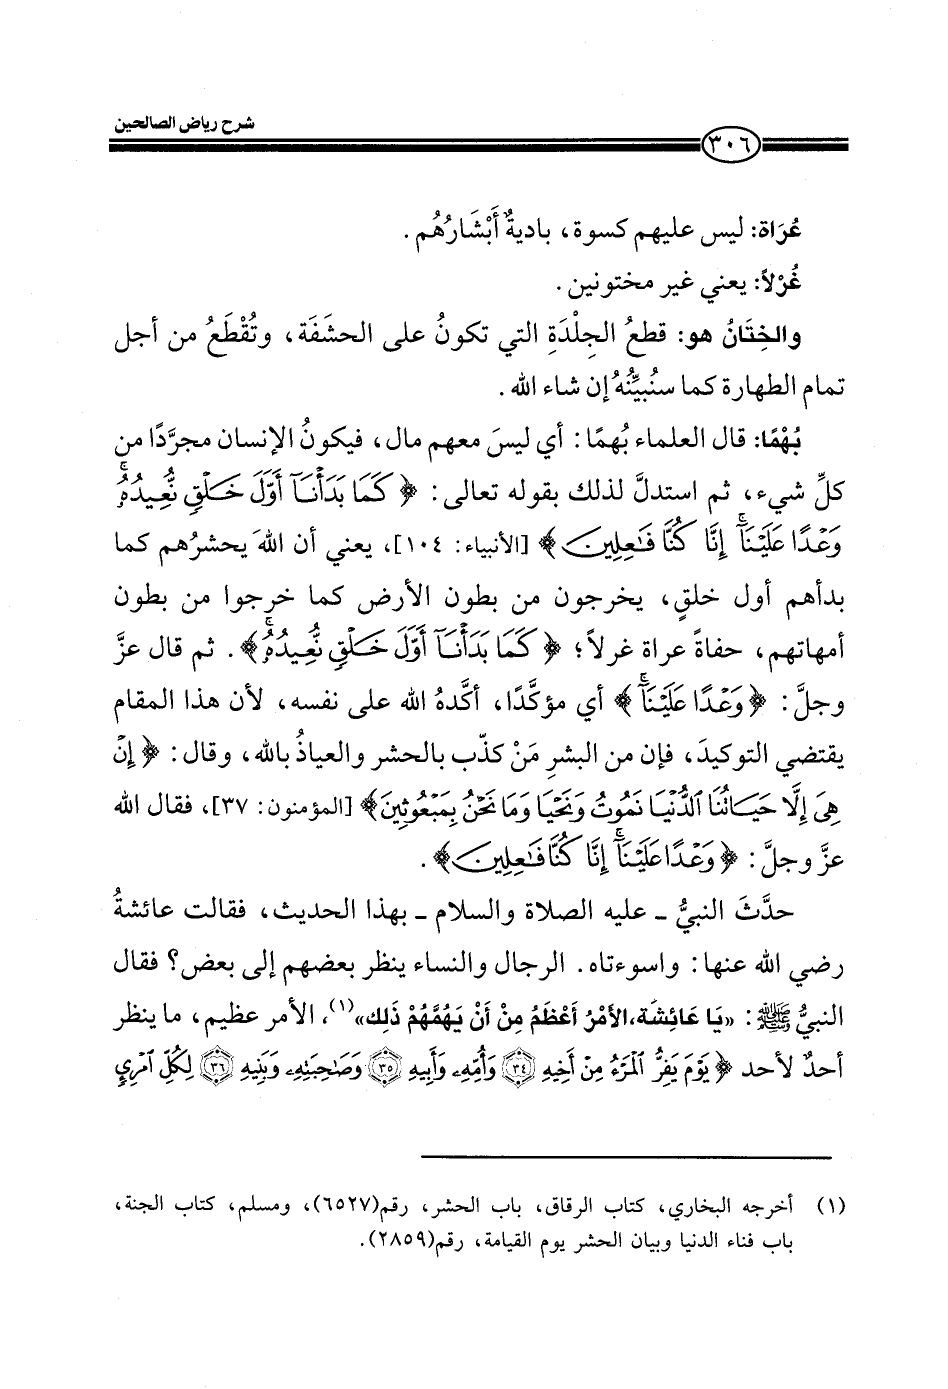 شرح رياض الصالحين
٣٠٦
عُرَاة: ليس عليهم كسوة، باديةٌ أَبْشَارُهُم.
غُرْلاً: يعني غير مختونين.
والخِتَانُ هو: قطعُ الجِلْدَةِ التي تكونُ على الحشفَة، وتُقْطَعُ من أجل
تمام الطهارة كما سنُبيِّنُهُ إن شاء الله.
بُهْمًا: قال العلماء بُهمًا: أي ليسَ معهم مال، فيكونُ الإنسان مجرَّدًا من
كلِّ شيء، ثم استدلَّ لذلك بقوله تعالى: ﴿كَمَا بَدَأْنَآ أَوَّلَ خَلْقٍ نُّعِيدُهُۥۚ
وَعْدًا عَلَيْنَآۚ إِنَّا كُنَّا فَـٰعِلِينَ﴾ [الأنبياء: ١٠٤]، يعني أن اللهَ يحشرُهم كما
بدأهم أول خلقٍ، يخرجون من بطون الأرض كما خرجوا من بطون
أمهاتهم، حفاةً عراة غرلاً؛ ﴿كَمَا بَدَأْنَآ أَوَّلَ خَلْقٍ نُّعِيدُهُۥۚ﴾. ثم قال عزَّ
وجلَّ: ﴿وَعْدًا عَلَيْنَآۚ﴾ أي مؤكَّدًا، أكَّدهُ الله على نفسه، لأن هذا المقام
يقتضي التوكيدَ، فإن من البشرِ مَنْ كذّب بالحشر والعياذُ بالله، وقال: ﴿إِنْ
هِىَ إِلَّا حَيَاتُنَا ٱلدُّنْيَا نَمُوتُ وَنَحْيَا وَمَا نَحْنُ بِمَبْعُوثِينَ﴾ [المؤمنون: ٣٧]، فقال الله
عزَّ وجلَّ: ﴿وَعْدًا عَلَيْنَآۚ إِنَّا كُنَّا فَـٰعِلِينَ﴾.
حدَّثَ النبيُّ ـ عليه الصلاة والسلام ـ بهذا الحديث، فقالت عائشةُ
رضي الله عنها: واسوءتاه. الرجال والنساء ينظر بعضهم إلى بعض؟ فقال
النبيُّ ﷺ: «يَا عَائِشَة،الأَمْرُ أَعْظَمُ مِنْ أَنْ يَهُمَّهُمْ ذَلِك»(١)، الأمر عظيم، ما ينظر
أحدٌ لأحد ﴿يَوْمَ يَفِرُّ ٱلْمَرْءُ مِنْ أَخِيهِ ٣٤ وَأُمِّهِۦ وَأَبِيهِ ٣٥ وَصَـٰحِبَتِهِۦ وَبَنِيهِ ٣٦ لِكُلِّ ٱمْرِئٍ
(١) أخرجه البخاري، كتاب الرقاق، باب الحشر، رقم(٦٥٢٧)، ومسلم، كتاب الجنة،
باب فناء الدنيا وبيان الحشر يوم القيامة، رقم(٢٨٥٩).